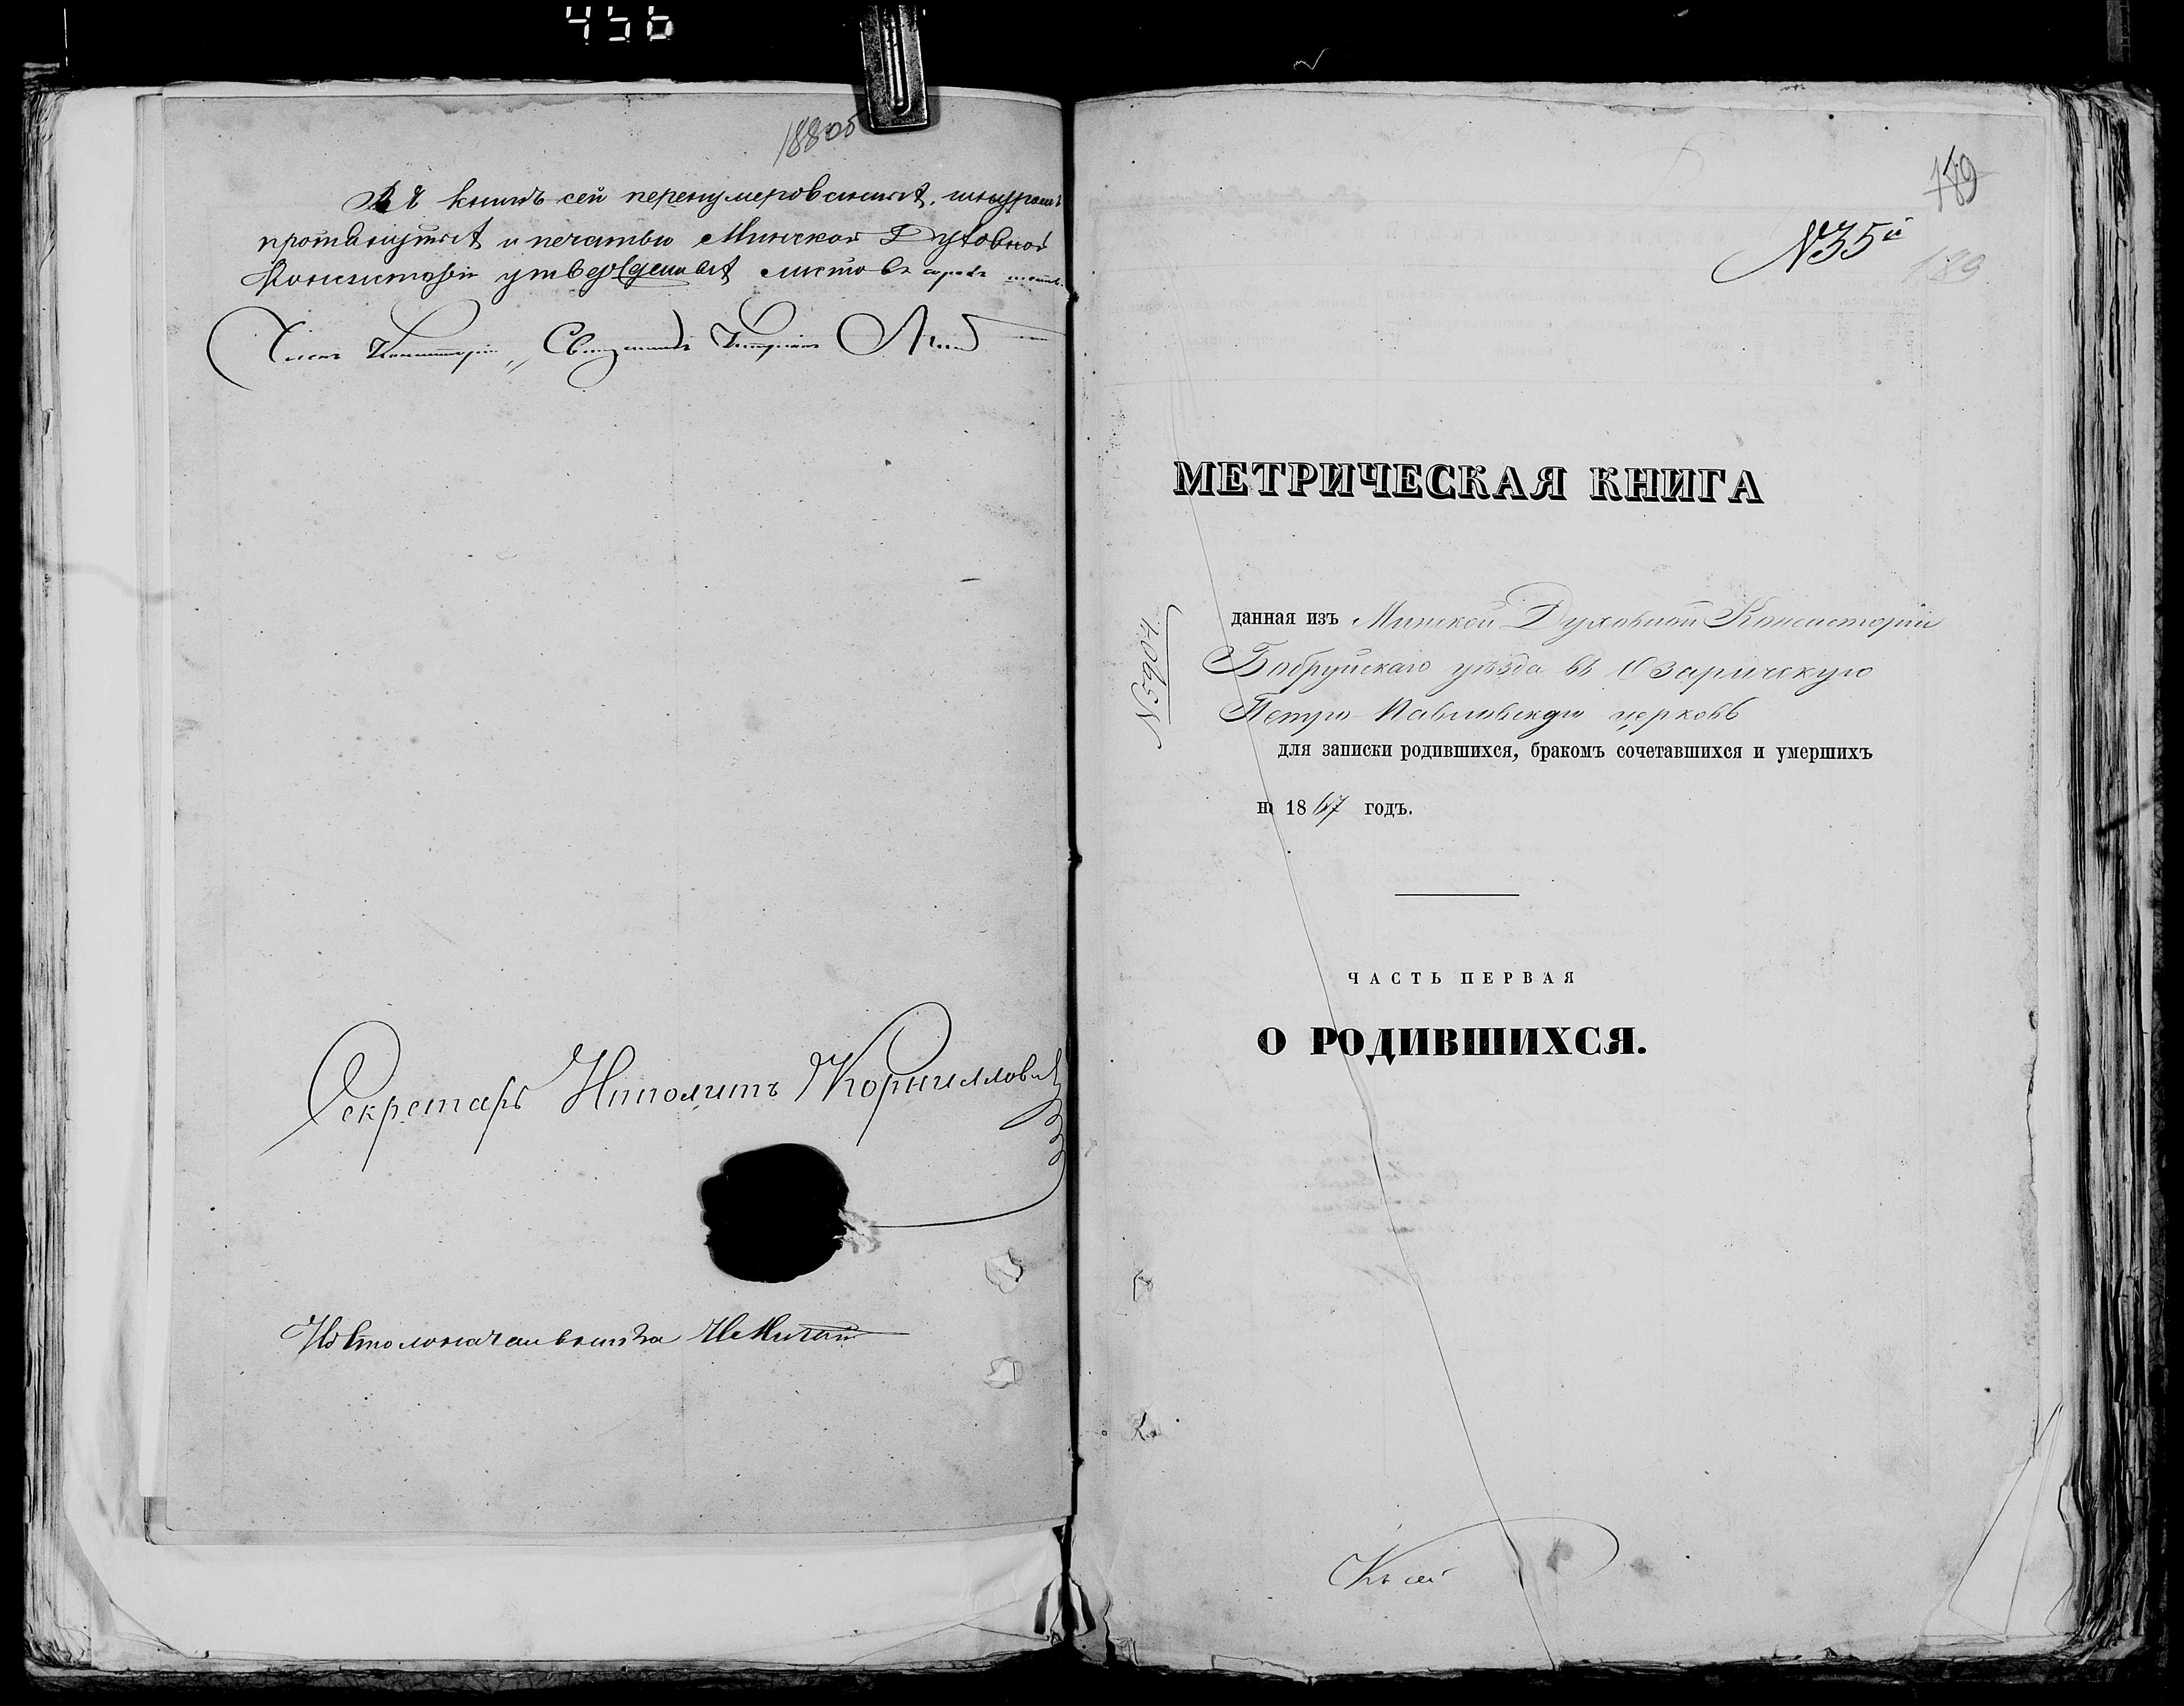 456
188 об
Въ книгѣ сей перенумерованныхъ, шнуромъ
протянутыхъ и печатью Минской Духовной
Консисторіи утвержденныхъ листовъ сорокъ
Членъ Консисторіи, Священникъ
Секретарь Иполитъ Корниллович
189
№35й
189
МЕТРИЧЕСКАЯ КНИГА
№5904
данная изъ Минской Духовной Консисторіи
Бобруйскаго уѣзда въ Озаричскую
Петро-Павловскую церковь
для записки родившихся, бракомъ сочетавшихся и умершихъ
на 1867 годъ.
ЧАСТЬ ПЕРВАЯ
О РОДИВШИХСЯ.
Къ сей